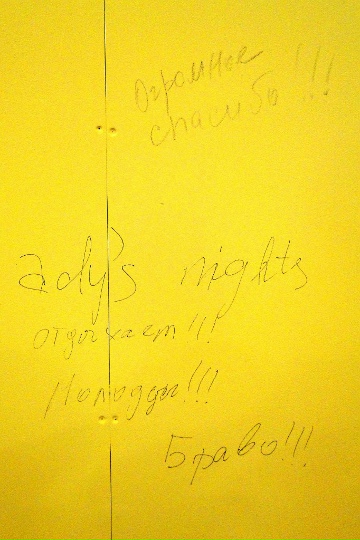 Огромное
спасибо!!!
Lady's nights
отдыхает!!!
Молодцы!!!
Браво!!!